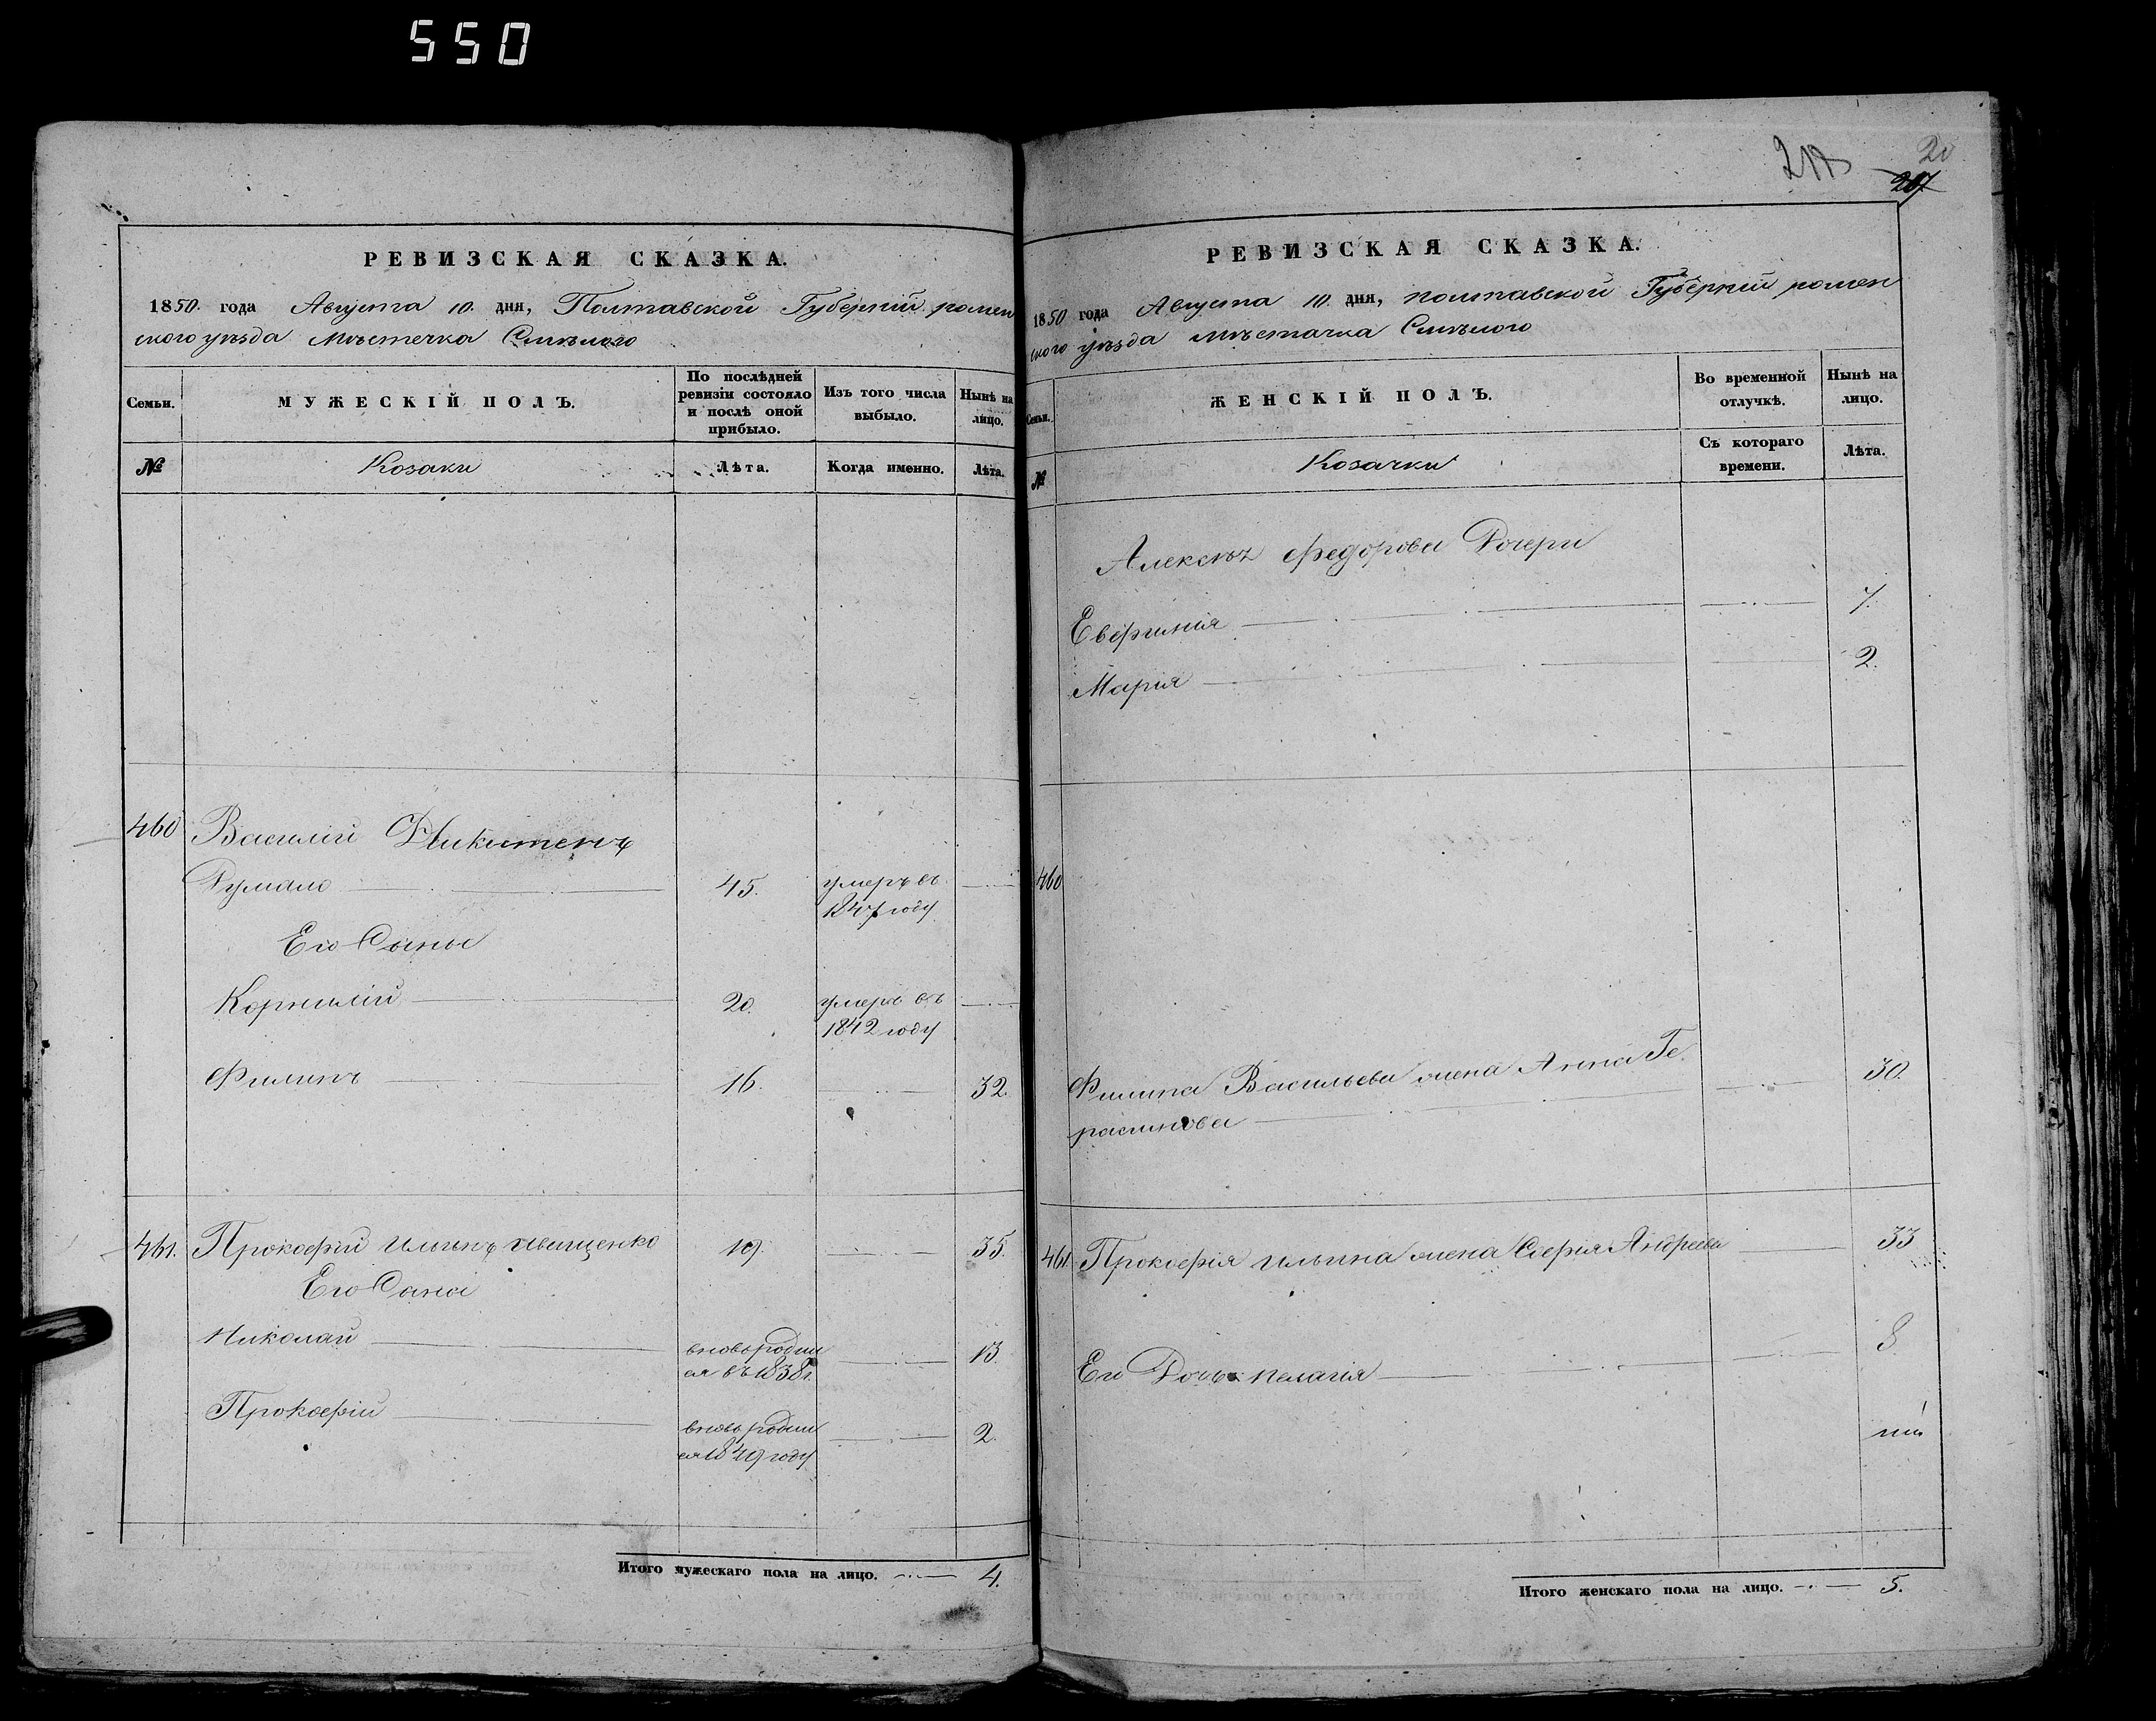 550
РЕВИЗСКАЯ СКАЗКА.
1850. года Августа 10. дня, Полтавской Губерніи ромен
ского уѣзда Мѣстечка Смѣлого
Семьи.
МУЖЕСКІЙ ПОЛЪ.
По послѣдней ревизіи состояло и послѣ оной прибыло.
Изъ того числа выбыло.
Нынѣ на лицо.
№
Козаки
Лѣта.
Когда именно.
Лѣта.
460 Василій Никитенъ
Думало 45. умеръ въ
1847 году
Его Сыны
Корнилій 20. умеръ въ
1842 году
Филипъ 16. 32.
461. Прокофій Ильинъ Иващенко 19. 35.
Его Сыны
Николай вновь родил
ся въ 1838 г. 13.
Прокофій вновь родил
ся 1849 году 2.
Итого мужескаго пола на лицо. 4.
20
207
РЕВИЗСКАЯ СКАЗКА.
1850 года Августа 10. дня, полтавской Губерніи ромен
ского уѣзда мѣстачка Смѣлого
Семьи.
ЖЕНСКІЙ ПОЛЪ.
Во временной отлучкѣ.
Нынѣ на лицо.
№
Козачки
Съ котораго времени.
Лѣта.
Алексѣя Федорова Дочери
Евфимія 7.
Марія 2.
460
Филипа Васильева жена Анна Ге 30.
расимова
461 Прокофія Ильина жена Софія Андреева 33
Его Дочь пелагія 8
Итого женскаго пола на лицо. 5.